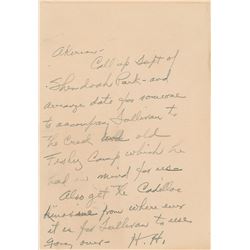 Akerson -
Call up Supt of
Shendoah Park - and
arrange date for someone
to accompany Sullivan to
the Creek and old
Fishg Camp which he
had in mind for use
Also get the Cadillac
from where ever
it is for Sullivan to use
Going over - H. H.